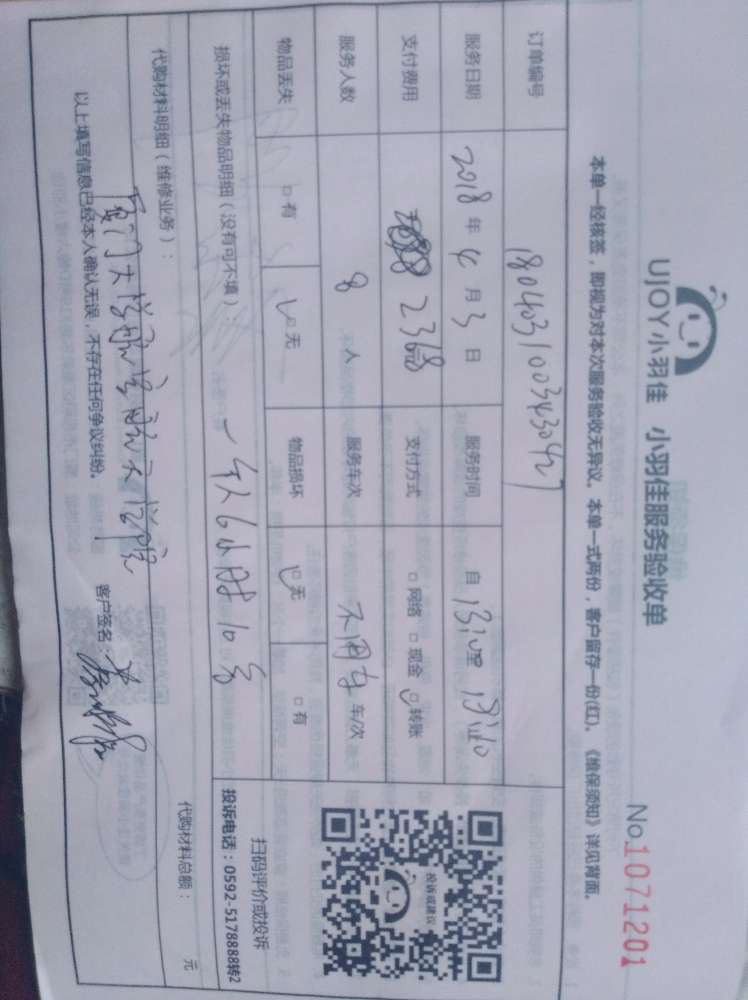 UJOY小羽佳 小羽佳服务验收单
No.1071201
本单一经核签，即视为对本次服务验收无异议。本单一式两份，客户留存一份(红)。《维保须知》详见背面。
订单编号 18040310034304027
服务日期 2018 年 4 月 3 日 服务时间 自
支付费用 2368 支付方式 □网络 □现金 □转账
服务人数 8 人 服务车次 不用车 车/次
物品丢失 □有 □无 物品损坏 □无 □有
投诉或建议
扫码评价或投诉
投诉电话：0592-5178888转2
损坏或丢失物品明细（没有可不填）：
代购材料明细（维修业务）：
厦门大学
代购材料总额： 元
以上填写信息已经本人确认无误，不存在任何争议纠纷。 客户签名：